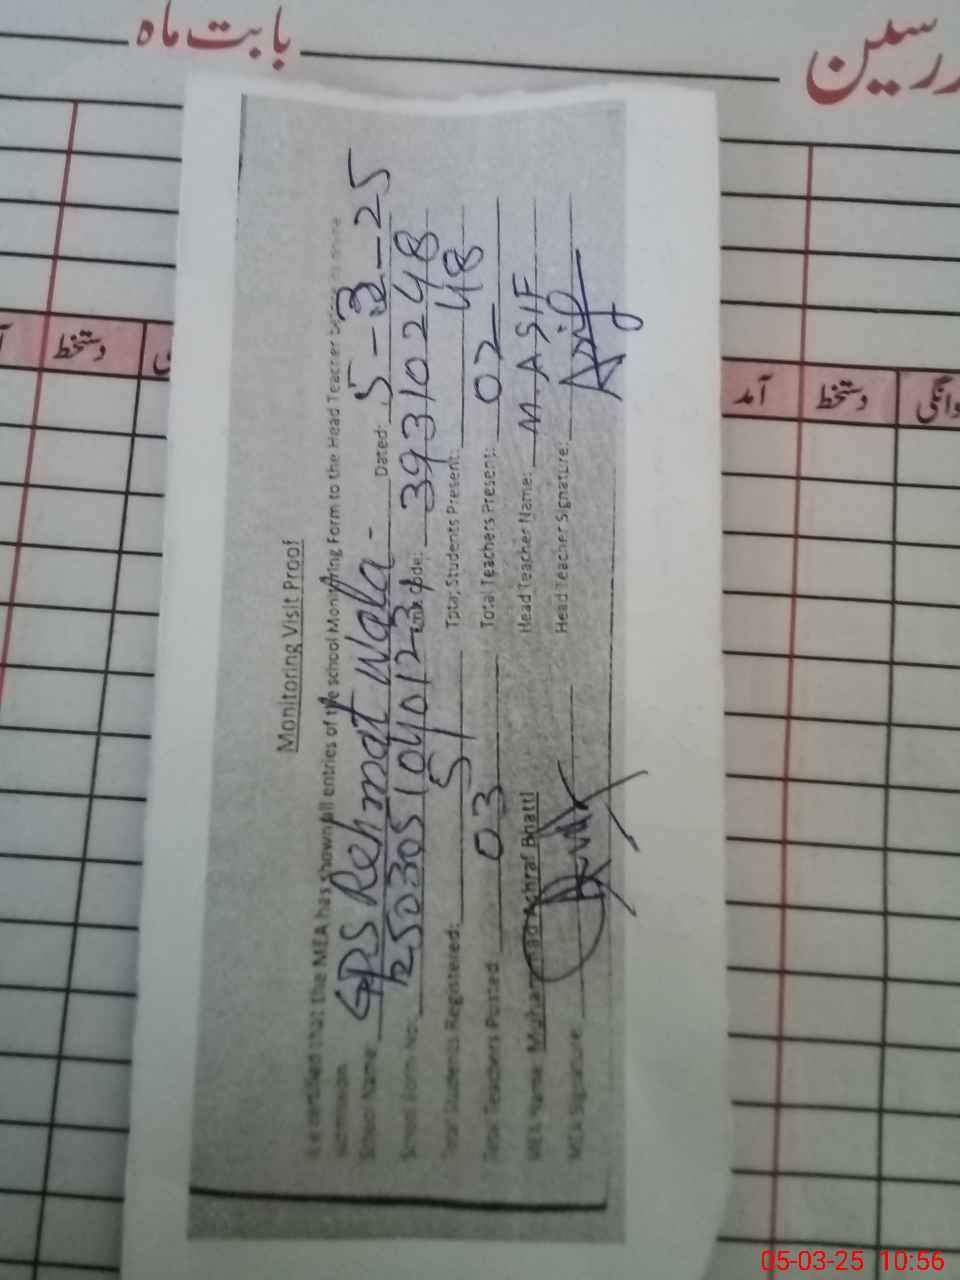 بابت ماہ
رسین
دستخط
آمد
دستخط
وانگی
Monitoring Visit Proof
is certified that the MEA has shown all entries of the school Monitoring Form to the Head Teacher before online
School Name: GPS Rehmat Wala - Dated: 5-3-25
School Form No: 25030510401231 Code: 39310248
Total Students Registered: 51 Total Students Present: 48
Total Teachers Posted 03 Total Teachers Present: 02
MEA Name: Muhammad Achraf Bhatti Head Teacher Name: M.ASIF
MEA Signature: Head Teacher Signature: Asif
05-03-25 10:56